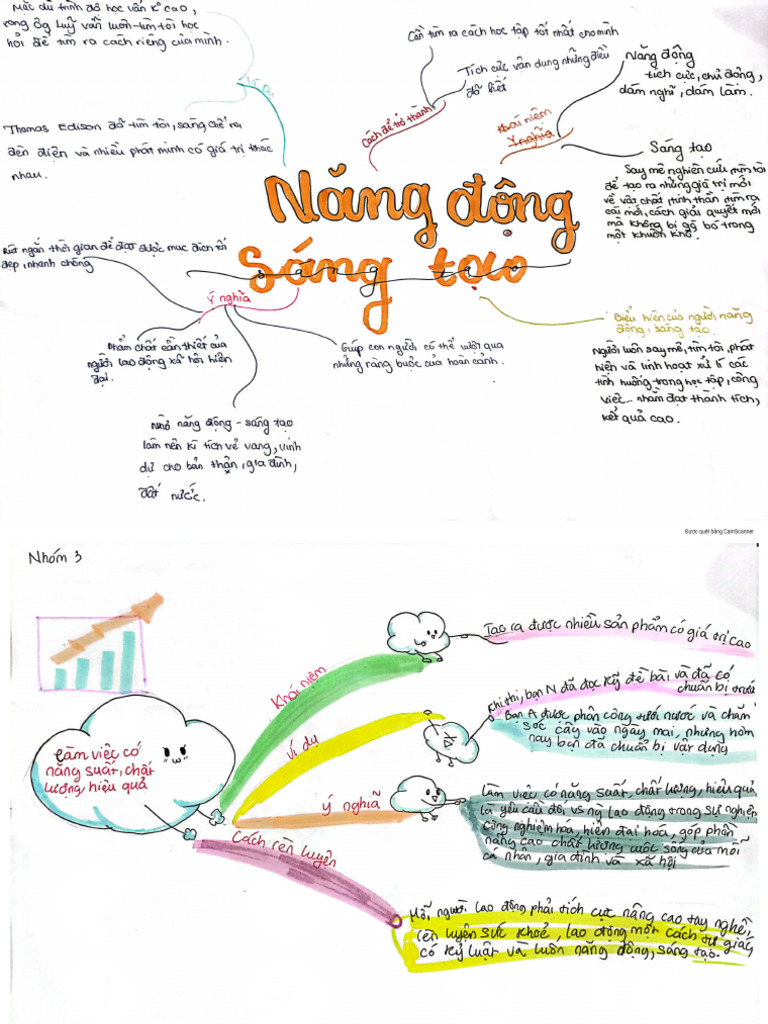 Mặc dù trình độ học vấn k cao,
song ôg luỹ vẫn luôn tìm tòi học
hỏi để tìm ra cách riêng của mình.
Ví dụ
Thomas Edison đã tìm tòi, sáng chế ra
đèn điện và nhiều phát minh có giá trị khác
nhau.
Cách để trở thành
Cần tìm ra cách học tập tốt nhất cho mình
Tích cực vận dụng những điều
đã biết
Khái niệm
Ý nghĩa
Năng động
tích cực, chủ động,
dám nghĩ, dám làm.
Sáng tạo
Say mê nghiên cứu, tìm tòi
để tạo ra những giá trị mới
về vật chất, tinh thần, tìm ra
cái mới, cách giải quyết mới
mà không bị gò bó trong
một khuôn khổ.
Năng động
sáng tạo
Biểu hiện của người năng
động, sáng tạo
Người luôn say mê, tìm tòi, phát
hiện và linh hoạt xử lí các
tình huống trong học tập, công
việc... nhằm đạt thành tích,
kết quả cao.
Ý nghĩa
Rút ngắn thời gian để đạt được mục đích tốt
đẹp, nhanh chóng
Phẩm chất cần thiết của
người lao động xã hội hiện
đại.
Nhờ năng động - sáng tạo
làm nên kì tích vẻ vang, vinh
dự cho bản thân, gia đình,
đất nước.
Giúp con người có thể vượt qua
những ràng buộc của hoàn cảnh.
Được quét bằng CamScanner
Nhóm 3
Làm việc có
năng suất, chất
lượng, hiệu quả
Khái niệm
Tạo ra được nhiều sản phẩm có giá trị cao
Ví dụ
Khi thi, bạn N đã đọc kỹ đề bài và đã có
chuẩn bị trước
Bạn A được phân công tưới nước và chăm
sóc cây vào ngày mai, nhưng hôm
nay bạn đã chuẩn bị vật dụng
Ý nghĩa
Làm việc có năng suất, chất lượng, hiệu quả
là yêu cầu đối vs ng lao động trong sự nghiệp
công nghiệp hóa, hiện đại hoá, góp phần
nâng cao chất lượng cuộc sống của mỗi
cá nhân, gia đình và xã hội
Cách rèn luyện
Mỗi người lao động phải tích cực nâng cao tay nghề,
rèn luyện sức khoẻ, lao động một cách tự giác,
có kỷ luật và luôn năng động, sáng tạo.